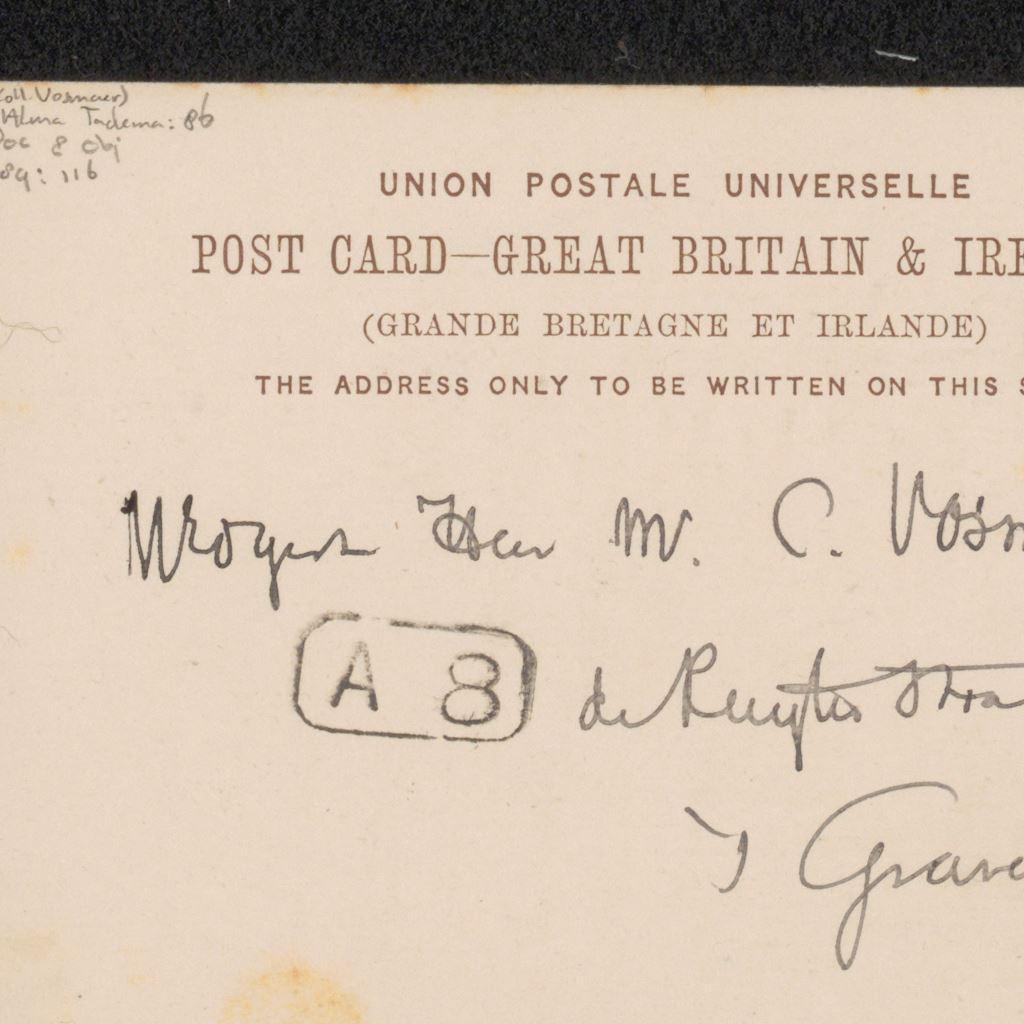 Coll. Vosmaer)
Alma Tadema: 86
Doc & Obj
89: 116
UNION POSTALE UNIVERSELLE
POST CARD—GREAT BRITAIN & IRE
(GRANDE BRETAGNE ET IRLANDE)
THE ADDRESS ONLY TO BE WRITTEN ON THIS S
Heer Mr. C. Vosm
A 8
de Ruyter Stra
Grave